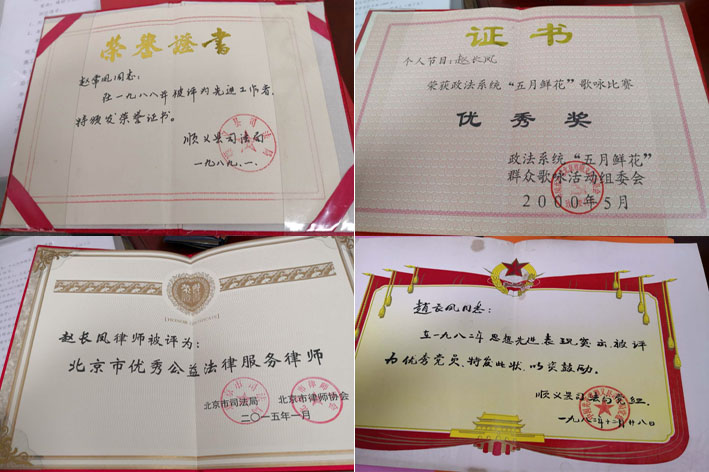 荣誉證書
赵常凤同志:
在一九八八年被评为先进工作者,
特颁发荣誉证书。
顺义县司法局
一九八九.一.
证书
个人节目:赵长凤
荣获政法系统“五月鲜花”歌咏比赛
优秀奖
政法系统“五月鲜花”
群众歌咏活动组委会
2000年5月
赵长凤律师被评为:
北京市优秀公益法律服务律师
北京市司法局 北京市律师协会
二〇一五年一月
趙长凤同志:
在一九八二年思想先进表现突出被评
为优秀党员,特发此状,以资鼓励。
顺义县司法局党组.
一九八二年十二月廿八日